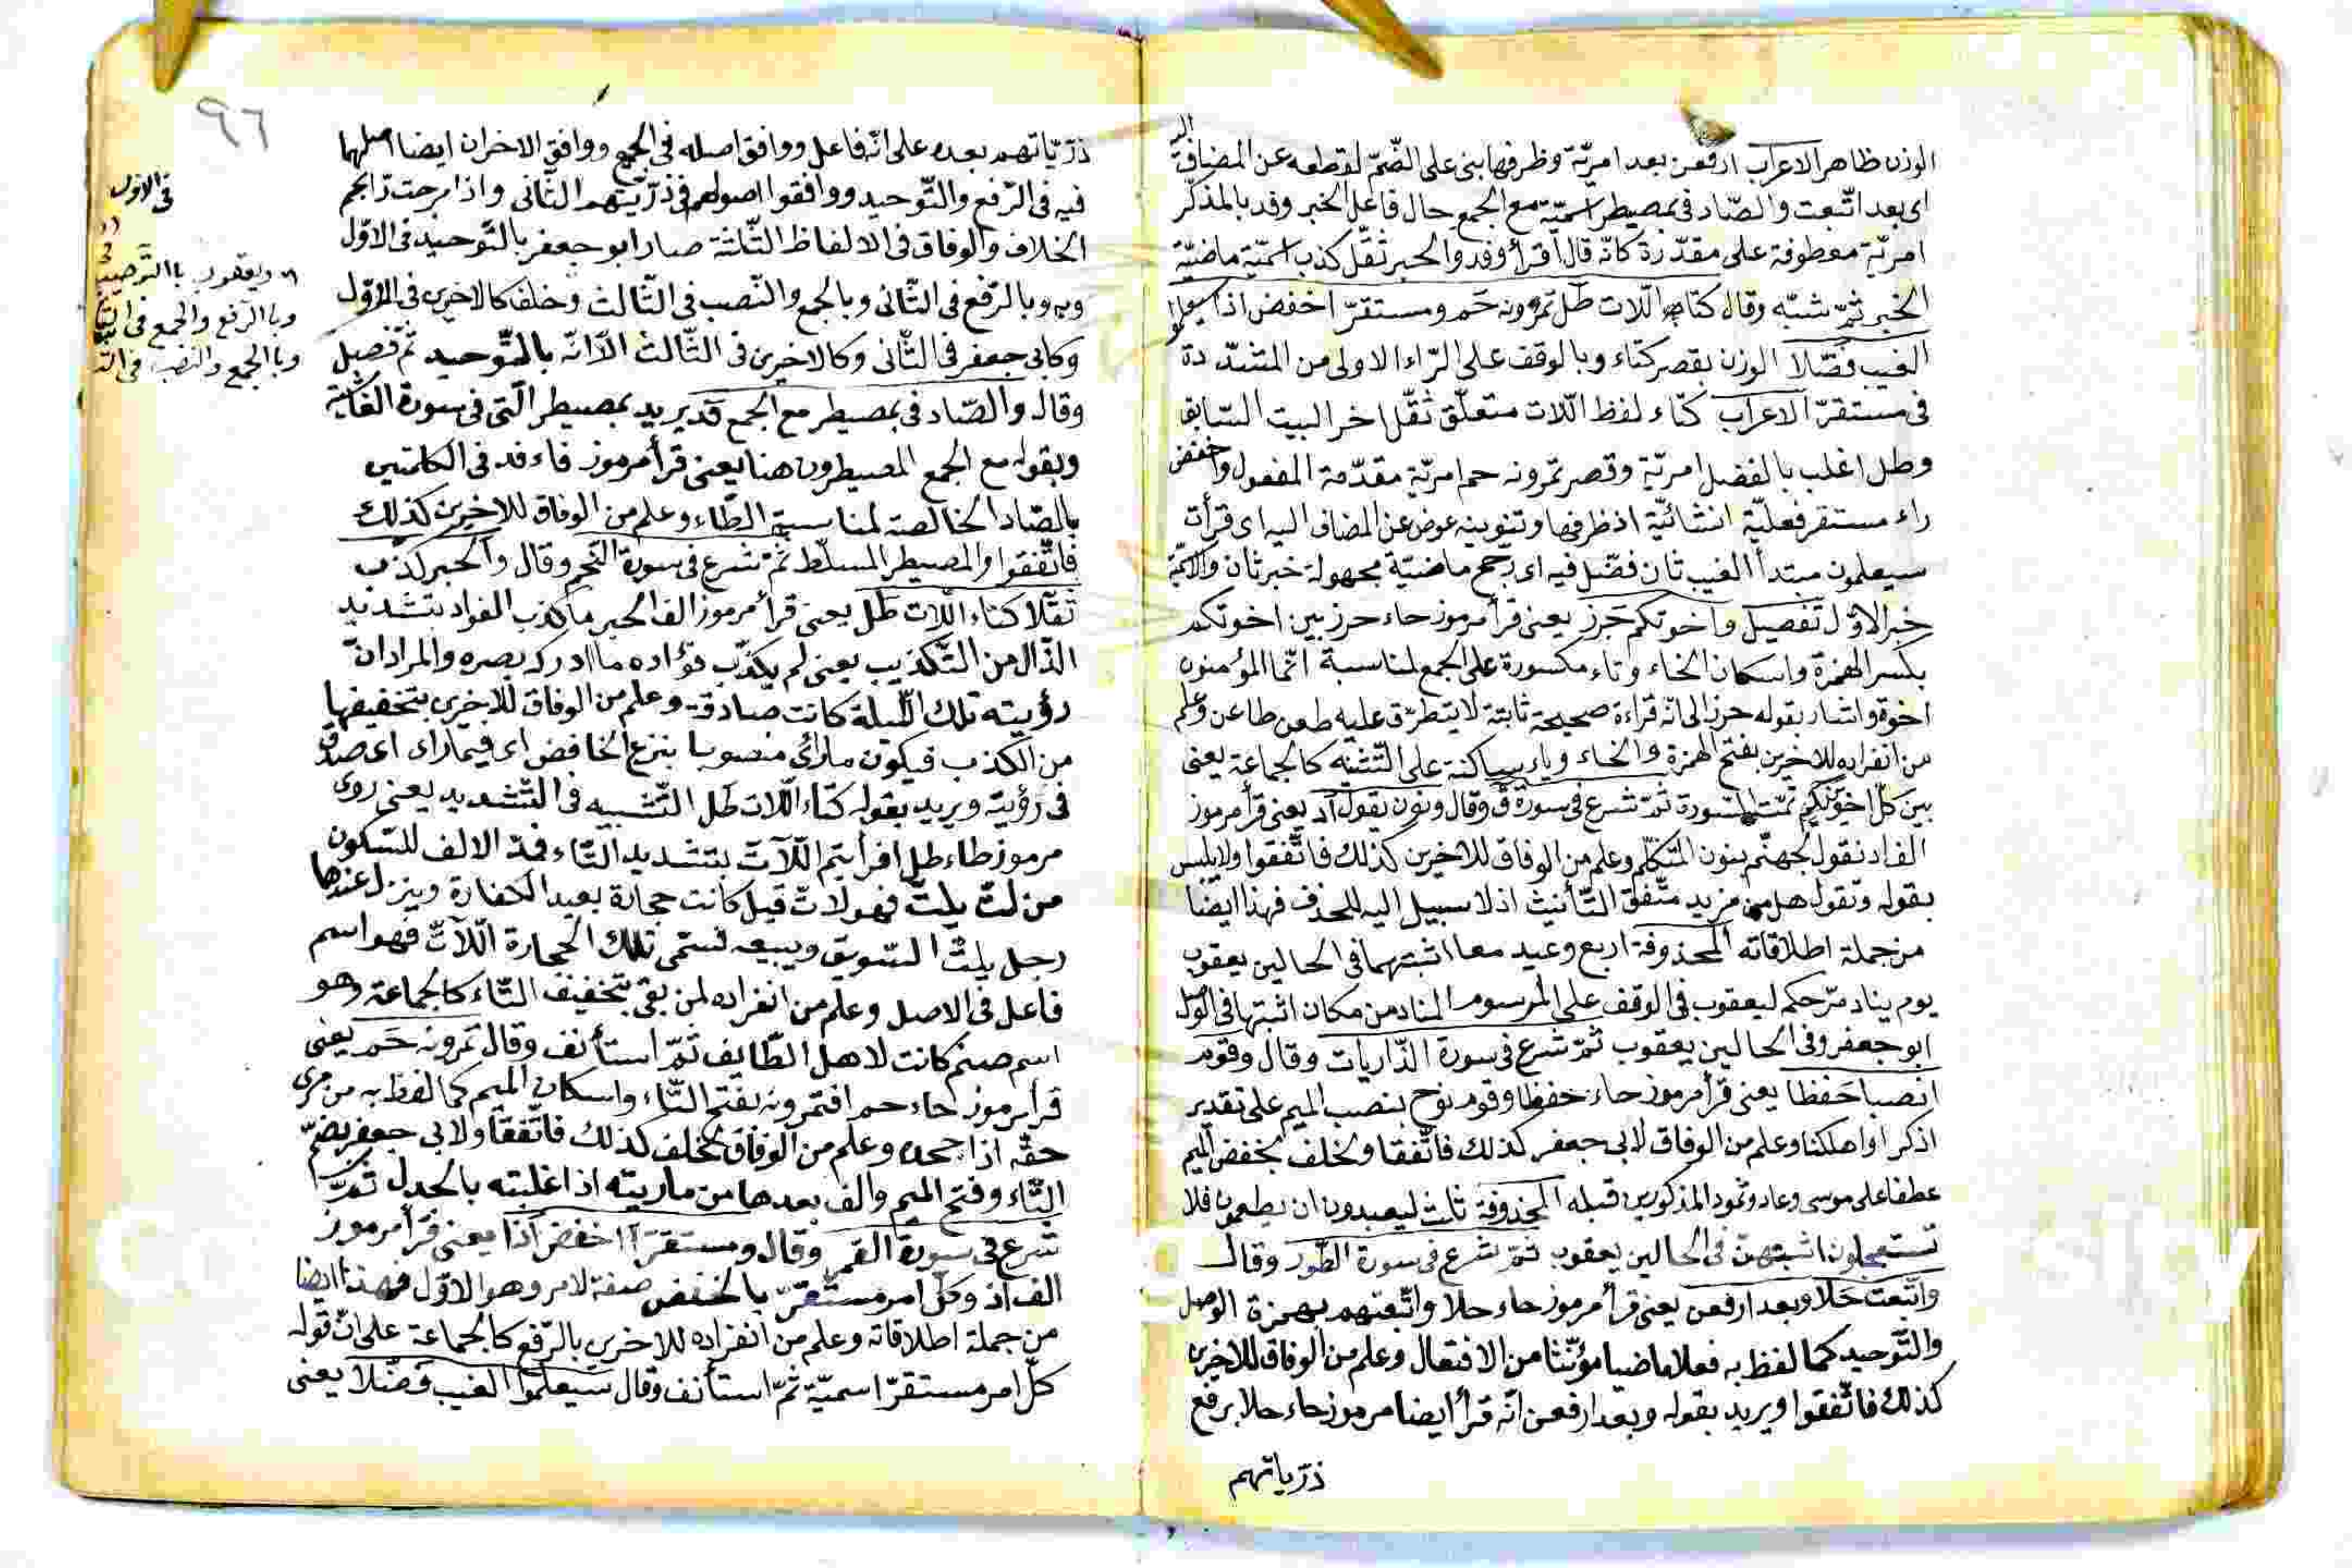 الوزن ظاهر الاعراب ارفعن بعد امريّة وظرفها بنى على الضّمّ لقطعه عن المضاف اليه
اى بعد اتّبعت والصّاد فى بمصيطر اسميّة مع الجمع حال فاعل الخبر وفد بالمذكّر
امريّة معطوفة على مقدّرة كانّه قال اقرأ وفد والحبر ثقّل كذب اسميّة ماضيّة
الخبر ثمّ شبّه وقال كتاء اللّات طل تمرونه حم ومستقرّ اخفض اذا سيعلموا
الغيب فضّلا الوزن بقصر كتاء وبالوقف على الرّاء الاولى من المشدّدة
فى مستقرّ الاعراب كتاء لفظ اللّات متعلّق ثقّل اخر البيت السّابق
وطل اغلب بالفضل امريّة وقصر تمرونه حم امريّة مقدّمة المفعول واخفض
راء مستقر فعليّة انشائيّة اذ ظرفها وتنوينه عوض عن المضاف اليه اى قرأت
سيعلمون مبتدأ الغيب ثان فضّل فيه اى رجح ماضيّة مجهولة خبر ثان والاسميّة
خبر الاوّل تفصيل واخوتكم حرز يعنى قرأ مرموز حاء حرز بين اخوتكم
بكسر الهمزة واسكان الخاء وتاء مكسورة على الجمع لمناسبة انّما المؤمنون
اخوة واشار بقوله حرز الى انّه قراءة صحيحة ثابتة لا يتطرّق عليه طعن طاعن وعلم
من انفراده للاخرين بفتح الهمزة والخاء وياء ساكنة على التّثنيه كالجماعة يعنى
بين كلّ اخويكم تمّت السّورة ثمّ شرع فى سورة ق وقال ونون يقول اد يعنى قرأ مرموز
الف اد نقول لجهنّم بنون المتكلّم وعلم من الوفاق للاخرين كذلك فاتّفقوا ولا يلبس
بقوله وتقول هل من مزيد متّفق التّأنيث اذ لا سبيل اليه للحذف فهذا ايضا
من جملة اطلاقاته المحذوفة اربع وعيد معا اثبتهما فى الحالين يعقوب
يوم يناد مرّ حكم ليعقوب فى الوقف على المرسوم المناد من مكان اثبتها فى الوصل
ابو جعفر وفى الحالين يعقوب ثمّ شرع فى سورة الذّاريات وقال وقوم
انصبا حفظا يعنى قرأ مرموز حاء حفظا وقوم نوح بنصب الميم على تقدير
اذكر او اهلكنا وعلم من الوفاق لابى جعفر كذلك فاتّفقا ولخلف بخفض الميم
عطفا على موسى وعاد وثمود المذكورين قبله المحذوفة ثلث ليعبدون ان يطعمون فلا
تستعجلون اثبتهنّ فى الحالين يعقوب ثمّ شرع فى سورة الطّور وقال
واتّبعت حلا وبعد ارفعن يعنى قرأ مرموز حاء حلا واتّبعتهم بهمزة الوصل
والتّوحيد كما لفظ به فعلا ماضيا مؤنّثا من الافتعال وعلم من الوفاق للاخرين
كذلك فاتّفقوا ويريد بقوله وبعد ارفعن انّه قرأ ايضا مرموز حاء حلا برفع
ذرّياتهم
٩٦
ذرّيّاتهم بعده على انّه فاعل ووافق اصله فى الجمع ووافق الاخران ايضا اصلهما
فيه فى الرّفع والتّوحيد ووافقوا اصولهم فى ذرّيّتهم الثّانى واذا مرجت تراجم
الخلاف والوفاق فى الالفاظ الثّلثة صار ابو جعفر بالتّوحيد فى الاوّل
وبالرّفع فى الثّانى وبالجمع والنّصب فى الثّالث وخلف كالاخرين فى الاوّل
وكابى جعفر فى الثّانى وكالاخرين فى الثّالث الّا انّه بالتّوحيد ثمّ فصيل
وقال والصّاد فى بمصيطر مع الجمع فد يريد بمصيطر الّتى فى سورة الغاشية
وبقوله مع الجمع المصيطرون هنا يعنى قرأ مرموز فاء فد فى الكلمتين
بالصّاد الخالصة لمناسبة الطّاء وعلم من الوفاق للاخرين كذلك
فاتّفقوا والمصيطر المسلّط ثمّ شرع فى سورة النّجم وقال والحبر كذّب
ثقّلا كتاء اللّات طل يعنى قرأ مرموز الف الحبر ما كذب الفواد بتشديد
الذّال من التّكذيب يعنى لم يكذّب فؤاده ما ادركه بصره والمراد انّ
رؤيته تلك اللّيلة كانت صادقة وعلم من الوفاق للاخرين بتخفيفها
من الكذب فيكون ما راى منصوبا بنزع الخافض اى فيما راى اى صدق
فى رؤيته ويريد بقوله كتاء اللّات طل التّشبيه فى التّشديد يعنى روى
مرموز طاء طل افرأيتم اللّاتّ بتشديد التّاء فمدّ الالف للسّكون
من لتّ يلتّ فهو لاتّ قيل كانت حجارة بعيد الكفارة وينزل عندها
رجل يلتّ السّويق ويبيعه فسمّى تلك الحجارة اللّاتّ فهو اسم
فاعل فى الاصل وعلم من انفراده لمن بقى بتخفيف التّاء كالجماعة وهو
اسم صنم كانت لاهل الطّايف ثمّ استأنف وقال تمرونه حم يعنى
قرأ مرموز حاء حم افتمرونه بفتح التّاء واسكان الميم كما لفظ به من مرى
حقّه اذا جحده وعلم من الوفاق لخلف كذلك فاتّفقا ولابى جعفر بضمّ
التّاء وفتح الميم والف بعدها من ماريته اذا غلبته بالجدل ثمّ
شرع فى سورة القمر وقال ومستقرّ اخفض اذا يعنى قرأ مرموز
الف اذ وكلّ امر مستقرّ بالخفض صفة لامر وهو الاوّل فهذا ايضا
من جملة اطلاقاته وعلم من انفراده للاخرين بالرّفع كالجماعة على انّ قوله
كلّ امر مستقرّ اسميّة ثمّ استأنف وقال سيعلموا الغيب فضّلا يعنى
فى الاوّل
ويعقوب بالنّصب
وبالرّفع والجمع فى
وبالجمع والنّصب فى